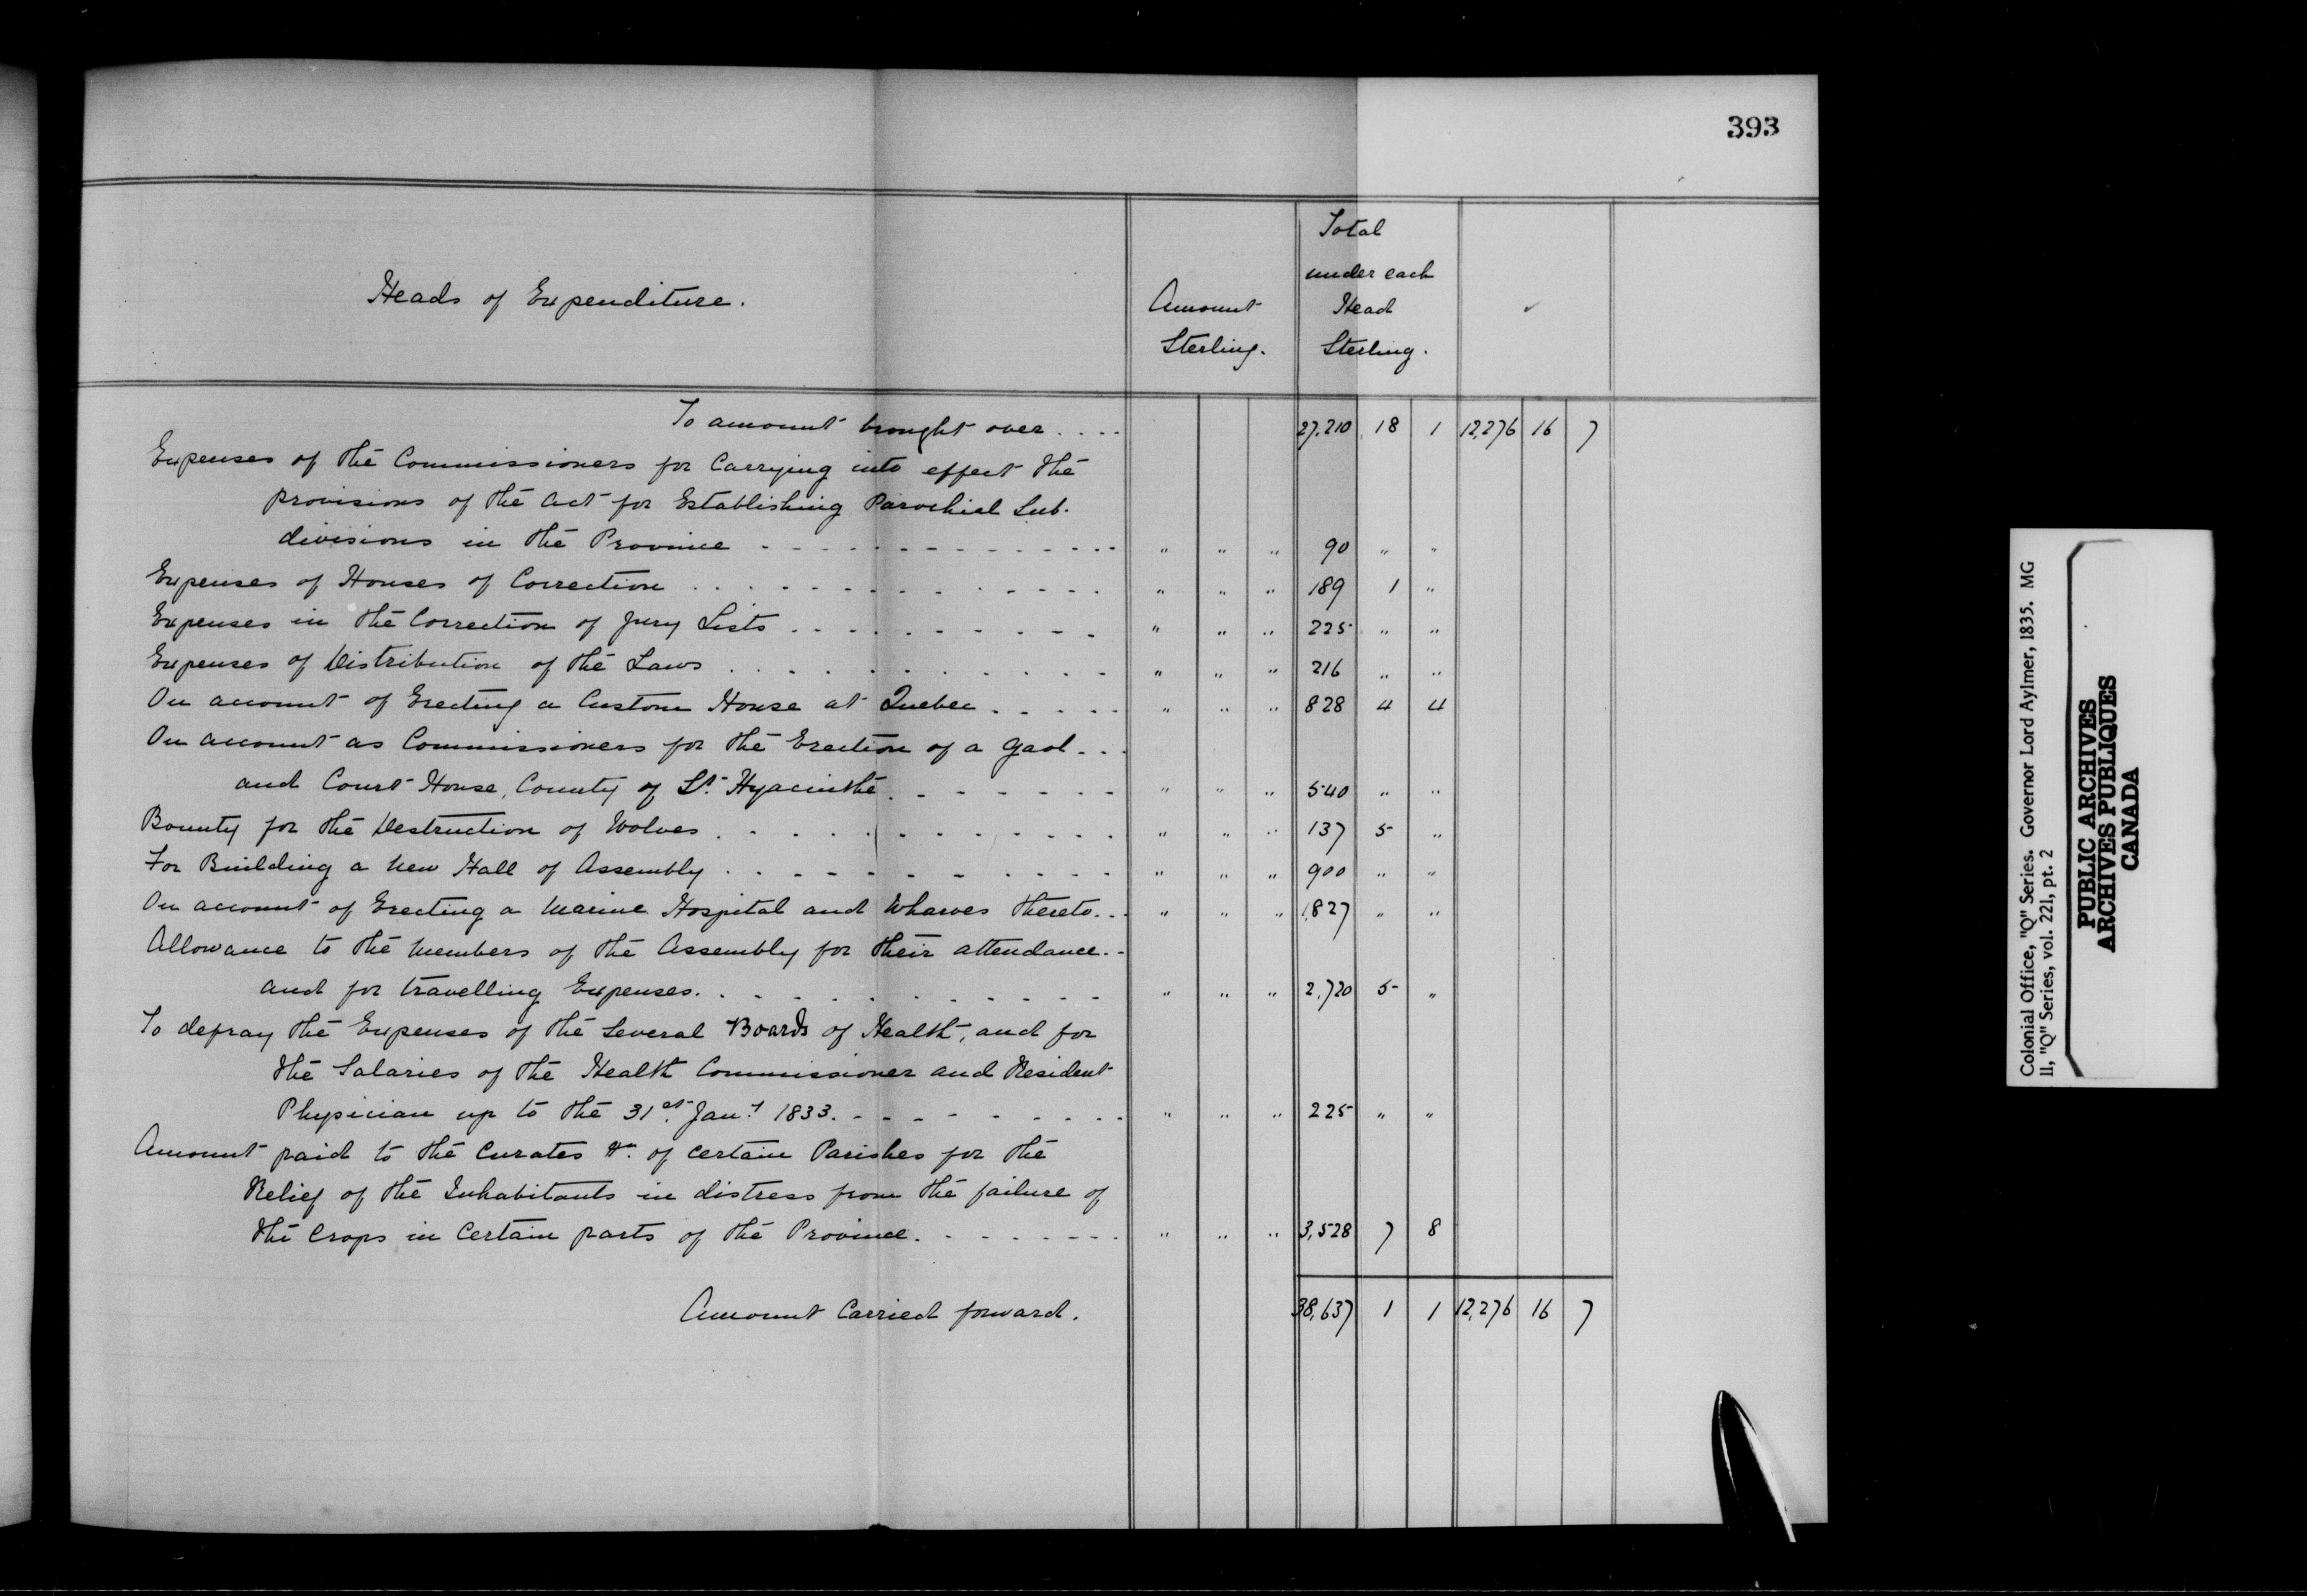 393
Heads of Expenditure.
Amount
Sterling.
Total
under each
Head
Sterling.
To amount brought over .... 27,210 18 1 12,276 16 7
Expenses of the Commissioners for Carrying into effect the
provisions of the Act for Establishing Parochial Sub-
divisions in the Province - - - - " " " 90 " "
Expenses of Houses of Correction . . . . " " " 189 1 "
Expenses in the Correction of Jury Lists . . . . " " " 225 " "
Expenses of Distribution of the Laws . . . . " " " 216 " "
On account of Erecting a Custom House at Quebec . . . . " " " 828 4 4
On account as Commissioners for the Erection of a Gaol - . .
and Court House, County of St. Hyacinthe . - - - " " " 540 " "
Bounty for the Destruction of Wolves . . . . " " " 137 5 "
For Building a New Hall of Assembly . . . . " " " 900 " "
On account of Erecting a Marine Hospital and Wharves thereto. . . " " " 1,827 " "
Allowance to the Members of the Assembly for their attendance. -
and for travelling Expenses. . . . . " " " 2,720 5 "
To defray the Expenses of the Several Boards of Health, and for
the Salaries of the Health Commissioner and Resident
Physician up to the 31st. Jany. 1833. - - - - " " " 225 " "
Amount paid to the Curates &c. of certain Parishes for the
Relief of the Inhabitants in distress from the failure of
the Crops in Certain parts of the Province. - - - - " " " 3,528 7 8
Amount Carried forward. 38,637 1 1 12,276 16 7
Colonial Office, "Q" Series. Governor Lord Aylmer, 1835. MG
11, "Q" Series, vol. 221, pt. 2
PUBLIC ARCHIVES
ARCHIVES PUBLIQUES
CANADA